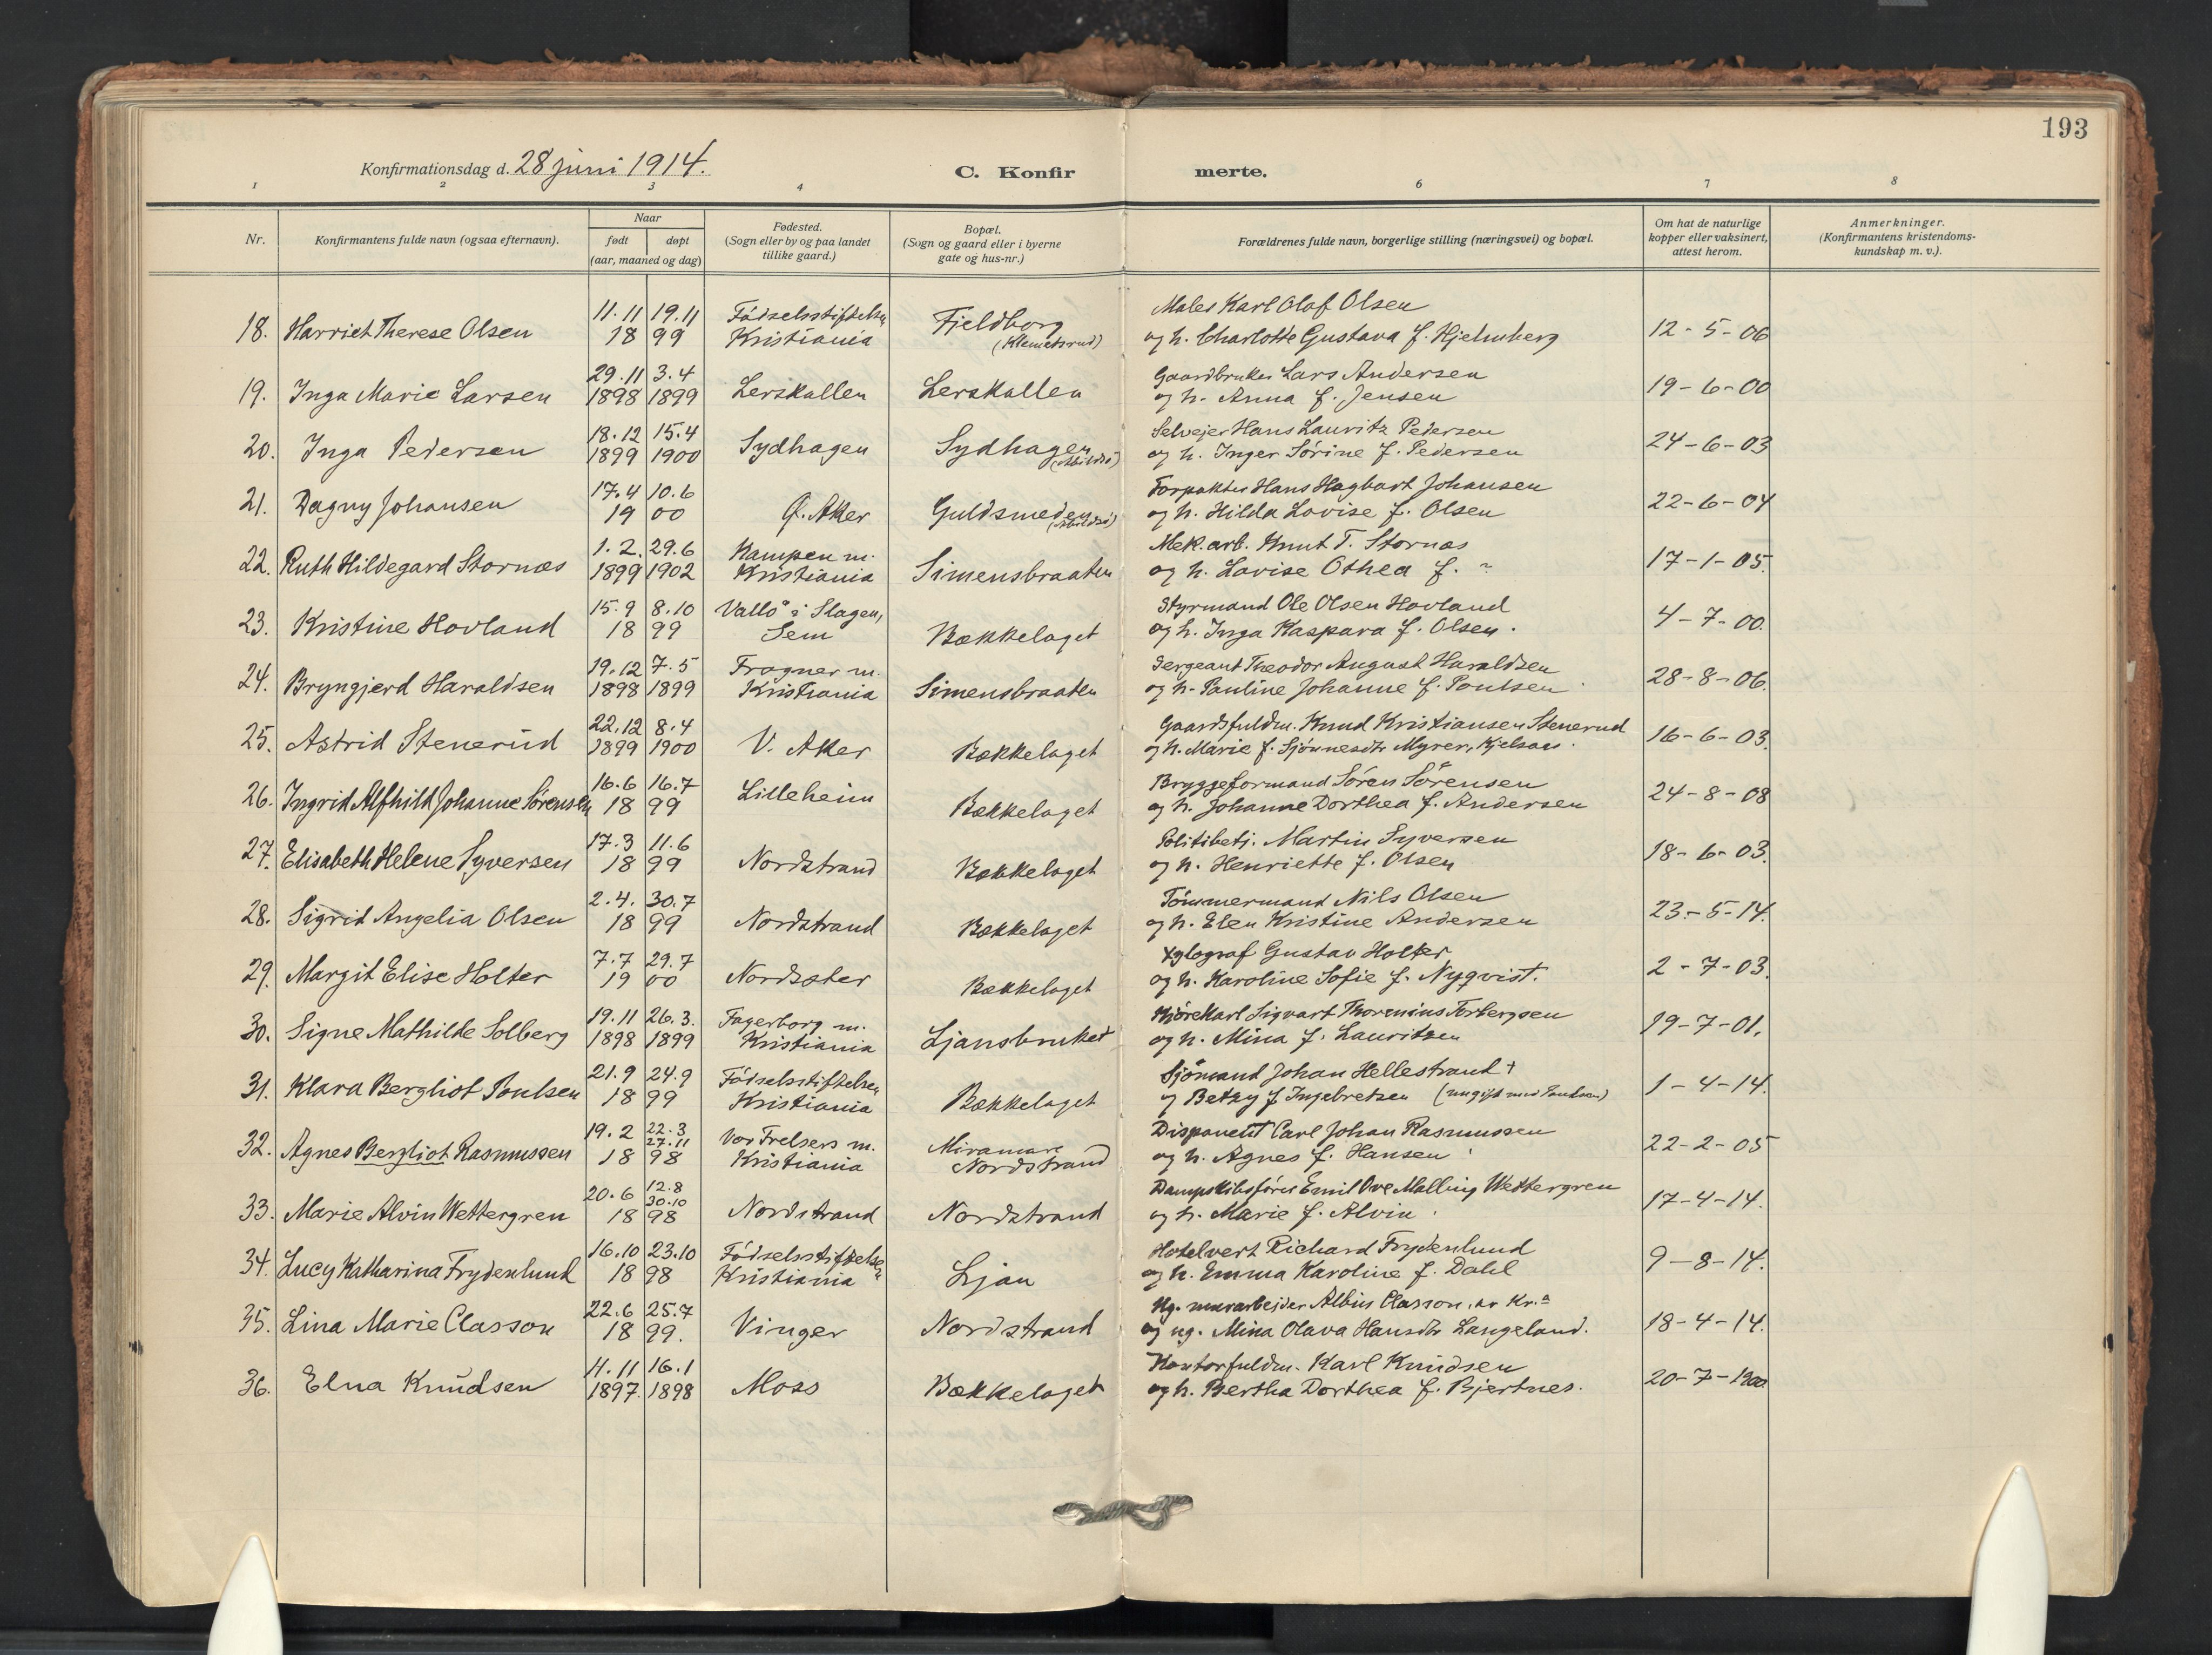 193
Konfirmationsdag d. 28 juni 1914.
C. Konfirmerte.
1 2 3 4 6 7 8
Nr.
Konfirmantens fulde navn (ogsaa efternavn).
Naar
født døpt
(aar, maaned og dag)
Fødested.
(Sogn eller by og paa landet
tillike gaard.)
Bopæl.
(Sogn og gaard eller i byerne
gate og hus-nr.)
Forældrenes fulde navn, borgerlige stilling (næringsvei) og bopæl.
Om hat de naturlige
kopper eller vaksinert,
attest herom.
Anmerkninger.
(Konfirmantens kristendoms-
kundskap m. v.).
11.11 19.11 Fødselsstiftelsen Fjeldborg Maler Karl Olaf Olsen
18. Harriet Therese Olsen 18 99 Kristiania (Klemetsrud) og h. Charlotte Gustava f. Hjelmberg 12-5-06
29.11 3.4 Gaardbruker Lars Andersen
19. Inga Marie Larsen 1898 1899 Lerskallen Lerskallen og h. Anna f. Jensen 19-6-00
18.12 15.4 Selvejer Hans Lauritz Pedersen
20. Inga Pedersen 1899 1900 Sydhagen Sydhagen (Abildsø) og h. Inger Sørine f. Pedersen 24-6-03
17.4 10.6 Forpakter Hans Hagbart Johansen
21. Dagny Johansen 19 00 Ø. Aker Guldsmeden (Abildsø) og h. Hilda Lovise f. Olsen 22-6-04
1.2. 29.6 Kampen m. Mek. arb. Knut T. Stornæs
22. Ruth Hildegard Stornæs 1899 1902 Kristiania Simensbraaten og h. Lovise Othea f. ~ 17-1-05.
15.9 8.10 Vallø i Slagen, Styrmand Ole Olsen Hovland
23. Kristine Hovland 18 99 Sem Bækkelaget og h. Inga Kaspara f. Olsen. 4-7-00.
19.12 7.5 Frogner m. Sergeant Theodor August Haraldsen
24. Bryngjerd Haraldsen 1898 1899 Kristiania Simensbraaten og h. Pauline Johanne f. Poulsen 28-8-06.
22.12 8.4 Gaardsfuldm. Knud Kristiansen Stenerud
25. Astrid Stenerud 1899 1900 V. Aker Bækkelaget og h. Marie f. Sjønnesdtr Myrer, Kjelsaas. 16-6-03.
16.6 16.7 Bryggeformand Søren Sørensen
26. Ingrid Alfhild Johanne Sørensen 18 99 Lilleheim Bækkelaget og h. Johanne Dorthea f. Andersen 24-8-08
17.3 11.6 Politibetj. Martin Syversen
27. Elisabeth Helene Syversen 18 99 Nordstrand Bækkelaget og h. Henriette f. Olsen 18-6-03.
2.4. 30.7 Tømmermand Nils Olsen
28. Sigrid Angelia Olsen 18 99 Nordstrand Bækkelaget og h. Elen Kristine Andersen 23-5-14.
7.7 29.7 Xylograf Gustav Holter
29. Margit Elise Holter 19 00 Nordsæter Bækkelaget og h. Karoline Sofie f. Nyqvist. 2-7-03.
19.11 26.3. Fagerborg m. Kjørekarl Sigvart Thorvinius Torbergsen
30. Signe Mathilde Solberg 1898 1899 Kristiania Ljansbruket og h. Mina f. Lauritzen 19-7-01.
21.9 24.9 Fødselsstiftelsen Sjømand Johan Hellestrand +
31. Klara Bergliot Poulsen 18 99 Kristiania Bækkelaget og Betzy f Ingebretsen (nu gift med Poulsen) 1-4-14.
19.2 22.3 27.11 Vor Frelsers m. Miramare Disponent Carl Johan Rasmussen
32. Agnes Bergliot Rasmussen 18 98 Kristiania Nordstrand og h. Agnes f. Hansen 22-2-05
20.6 12.8 30.10 Dampskibsfører Emil Ove Malling Wettergren
33. Marie Alvin Wettergren 18 98 Nordstrand Nordstrand og h. Marie f. Alvin. 17-4-14.
16.10 23.10 Fødselsstiftelsen Hotelvert Richard Frydenlund
34. Lucy Katharina Frydenlund 18 98 Kristiania Ljan og h. Emma Karoline f. Dahl 9-8-14.
22.6 25.7 Ug. murarbejder Albin Classon av Kr.a
35. Lina Marie Classon 18 99. Vinger Nordstrand og ug. Mina Olava Hansdtr Langeland. 18-4-14.
4.11 16.1 Kontorfuldm. Karl Knudsen
36. Elna Knudsen 1897. 1898 Moss Bækkelaget og h. Bertha Dorthea f. Bjertnes. 20-7-1900